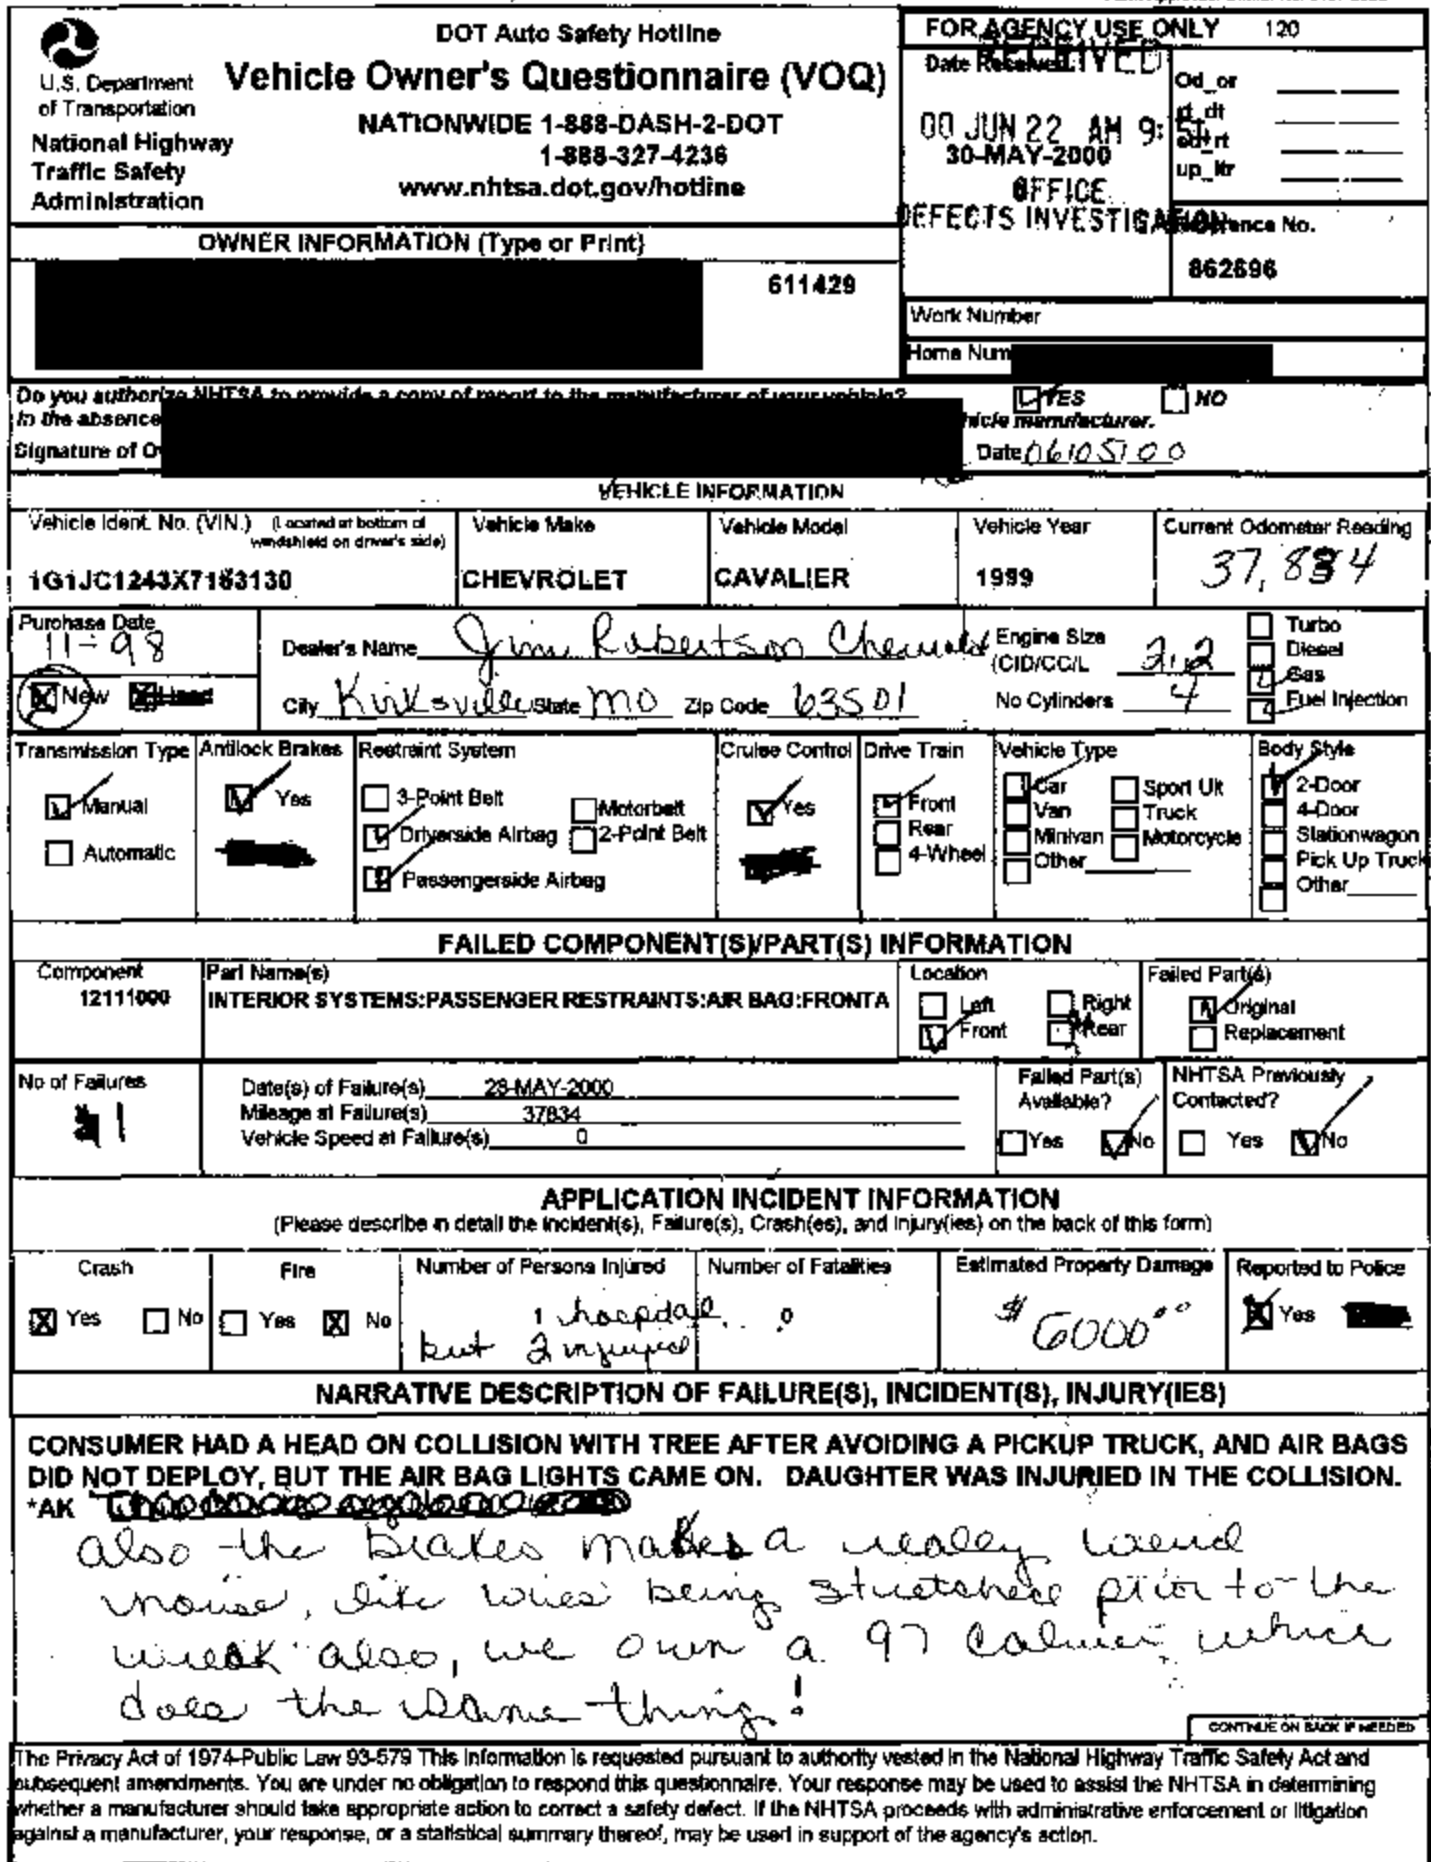 DOT Auto Safety Hotline
Vehicle Owner's Questionnaire (VOQ)
NATIONWIDE 1-888-DASH-2-DOT
1-888-327-4236
www.nhtsa.dot.gov/hotline
U.S. Department
of Transportation
National Highway
Traffic Safety
Administration
FOR AGENCY USE ONLY 120
RECEIVED
Date Received
00 JUN 22 AM 9:51
30-MAY-2000
OFFICE
DEFECTS INVESTIGATION
Od_or
rt_dt
od_rt
up_ltr
Reference No.
862696
OWNER INFORMATION (Type or Print)
611429
Work Number
Home Num
Do you authorize NHTSA to provide a copy of report to the manufacturer of your vehicle? YES NO
In the absence vehicle manufacturer.
Signature of O Date 06/05/00
VEHICLE INFORMATION
Vehicle Ident. No. (VIN.) (Located at bottom of windshield on driver's side)
1G1JC1243X7163130
Vehicle Make
CHEVROLET
Vehicle Model
CAVALIER
Vehicle Year
1999
Current Odometer Reading
37,834
Purchase Date
11-98
New Used
Dealer's Name Jim Robertson Chevrolet
City Kirksville State MO Zip Code 63501
Engine Size
(CID/CC/L 2.2
No Cylinders 4
Turbo
Diesel
Gas
Fuel Injection
Transmission Type
Manual
Automatic
Antilock Brakes
Yes
Restraint System
3-Point Belt
Driverside Airbag
Passengerside Airbag
Motorbelt
2-Point Belt
Cruise Control
Yes
Drive Train
Front
Rear
4-Wheel
Vehicle Type
Car
Van
Minivan
Other
Sport Ult
Truck
Motorcycle
Body Style
2-Door
4-Door
Stationwagon
Pick Up Truck
Other
FAILED COMPONENT(S)/PART(S) INFORMATION
Component
12111000
Part Name(s)
INTERIOR SYSTEMS:PASSENGER RESTRAINTS:AIR BAG:FRONTA
Location
Left
Front
Right
Rear
Failed Part(s)
Original
Replacement
No of Failures
1
Date(s) of Failure(s) 28-MAY-2000
Mileage at Failure(s) 37834
Vehicle Speed at Failure(s) 0
Failed Part(s)
Available?
Yes No
NHTSA Previously
Contacted?
Yes No
APPLICATION INCIDENT INFORMATION
(Please describe in detail the incident(s), Failure(s), Crash(es), and Injury(ies) on the back of this form)
Crash
Yes No
Fire
Yes No
Number of Persons Injured
1 hospital
but 2 injuried
Number of Fatalities
0
Estimated Property Damage
$6000 00
Reported to Police
Yes
NARRATIVE DESCRIPTION OF FAILURE(S), INCIDENT(S), INJURY(IES)
CONSUMER HAD A HEAD ON COLLISION WITH TREE AFTER AVOIDING A PICKUP TRUCK, AND AIR BAGS
DID NOT DEPLOY, BUT THE AIR BAG LIGHTS CAME ON. DAUGHTER WAS INJURIED IN THE COLLISION.
*AK
also the Brakes makes a really weird
noise, like wires being stretched prior to the
wreck also, we own a 97 which
does the same thing!
CONTINUE ON BACK IF NEEDED
The Privacy Act of 1974-Public Law 93-579 This information is requested pursuant to authority vested in the National Highway Traffic Safety Act and
subsequent amendments. You are under no obligation to respond this questionnaire. Your response may be used to assist the NHTSA in determining
whether a manufacturer should take appropriate action to correct a safety defect. If the NHTSA proceeds with administrative enforcement or litigation
against a manufacturer, your response, or a statistical summary thereof, may be used in support of the agency's action.